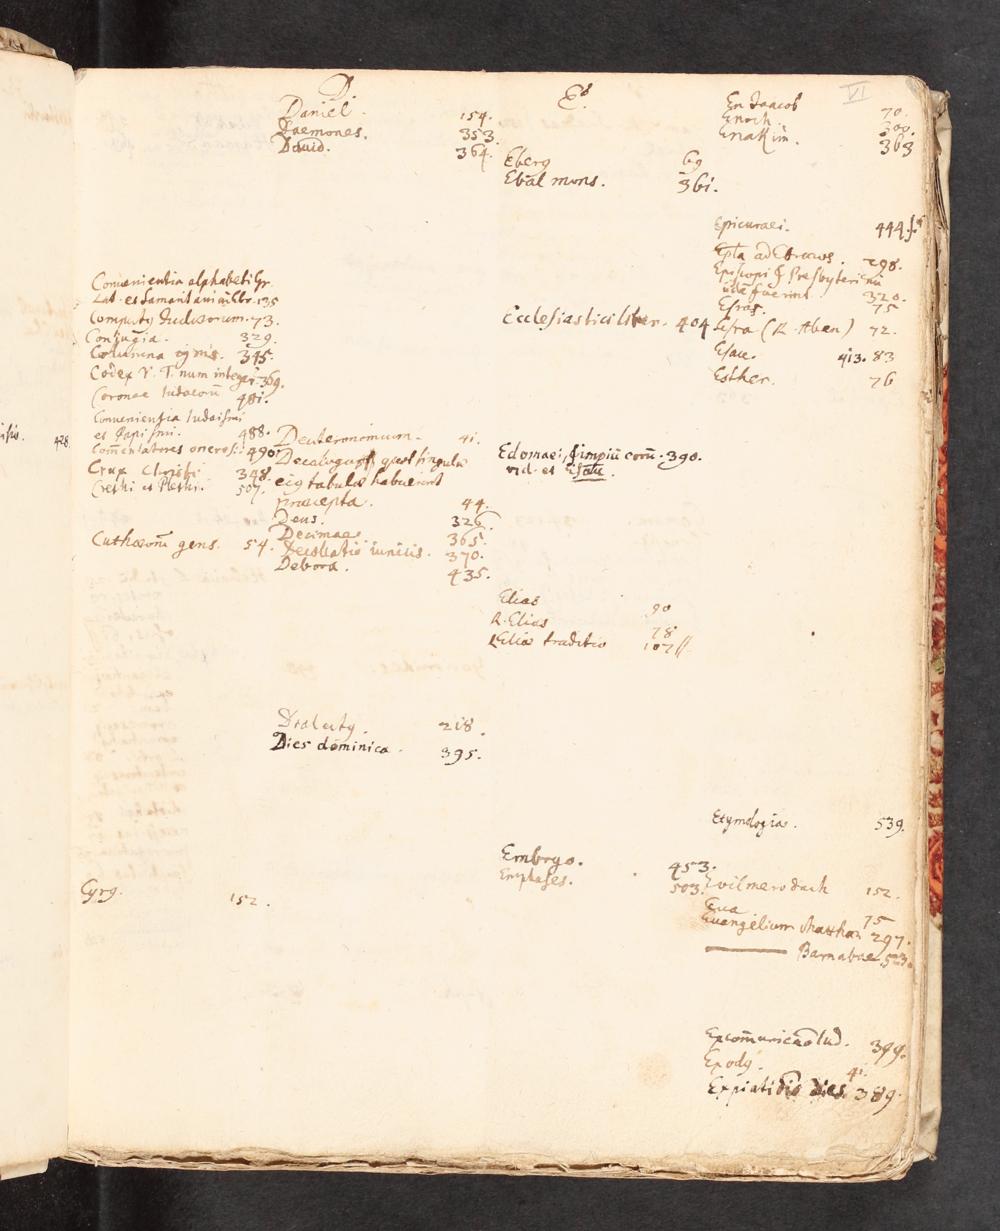 VI
Convenientia alphabeti Gr.
Lat. et Samaritani cum Ebr. 135
Computus Judaeorum. 73.
Conjugia. 329.
Columna ignis. 345.
Codex V. T. num integer. 369.
Coronae Iudaeorū 401.
Convenientia Iudaismi
et Papismi. 488.
Com̄entatores onerosi. 490.
Crux Christi 348.
Crethi et Plethi. 507.
Cuthaeorū gens. 54.
Cyrus. 152.
D.
Daniel. 154.
Daemones. 353.
David. 364.
Deuteronomium. 41.
Decalogus quot singulae
eius tabulae habuerint
praecepta. 44.
Deus. 326.
Decimae. 365.
iunicis. 370.
Debora. 435.
Dialectus. 218.
Dies dominica. 395.
E.
Eberg 69
Ebal mons. 361.
Ecclesiastici liber. 404
Edomaei, impiū com̄. 390.
vid. et Esau.
Elias 90
R. Elias 78
Eliae traditio 107
Embryo. 453.
Emphases. 503.
En Jaacob 70.
Enoch. 300.
Enakim. 363
Epicuraei. 444.
Epla ad Ebraeos. 298.
Episcopi & Presbyteri nū
iidē fuerint 320.
Esras. 75
Esra (R. Aben) 72.
Esau. 413. 83
Esther. 76
Etymologia. 539.
Evilmerodach 152.
Eva 75
Evangelium Matthaei 297.
——— Barnabae. 523.
Excom̄unicatio Iud. 399.
Exodus. 41.
Expiationis dies. 389.